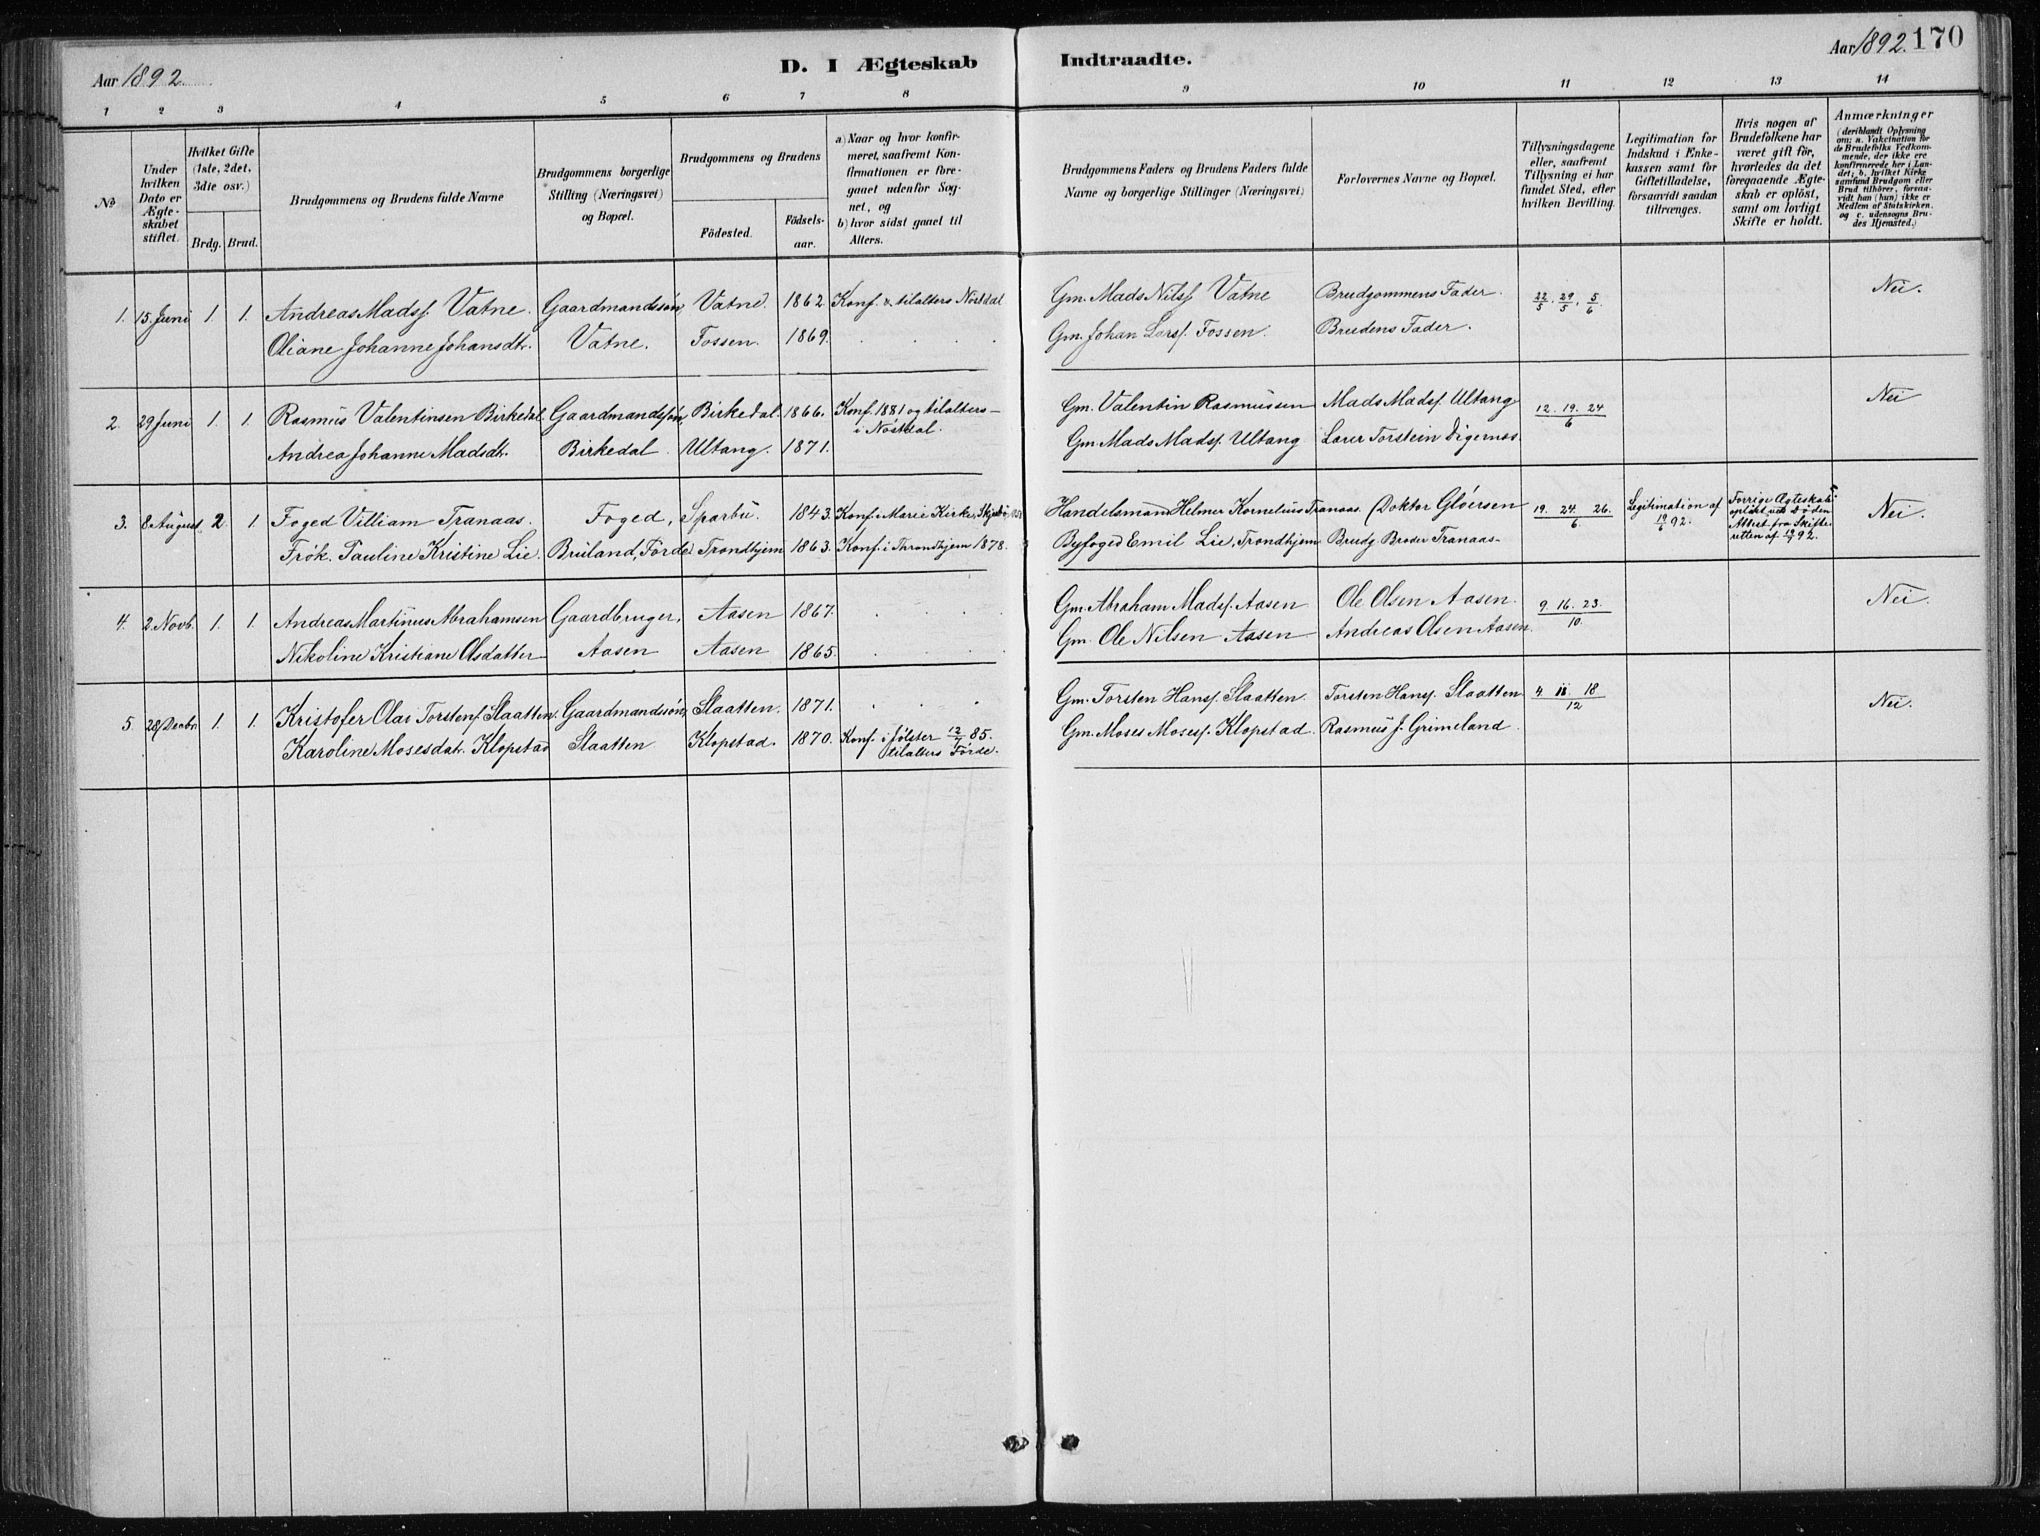 Aar 1892. D. I Ægteskab Indtraadte. Aar 1892. 170
1 2 3 4 5 6 7 8 9 10 11 12 13 14
No
Under hvilken Dato er Ægteskabet stiftet.
Hvilket Gifte (1ste, 2det, 3die osv.)
Brdg. Brud.
Brudgommens og Brudens fulde Navne
Brudgommens borgerlige Stilling (Næringsvei) og Bopæl.
Brudgommens og Brudens
Födested. Födsels-aar.
a) Naar og hvor konfirmeret, saafremt Konfirmationen er foregaaet udenfor Sognet, og
b) hvor sidst gaaet til Alters.
Brudgommens Faders og Brudens Faders fulde Navne og borgerlige Stillinger (Næringsvei)
Forlovernes Navne og Bopæl.
Tillysningsdagene eller, saafremt Tillysning ei har fundet Sted, efter hvilken Bevilling.
Legitimation for Indskud i Enkekassen samt for Giftetilladelse, forsaavidt saadan tiltrænges.
Hvis nogen af Brudefolkene har været gift för, hvorledes da det foregaaende Ægteskab er oplöst, samt om lovligt Skifte er holdt.
Anmærkninger (deriblandt Oplysning om: a. Vakcination for de Brudefolks Vedkommende, der ikke ere konfirmerede her i Landet; b. hvilket Kirkesamfund Brudgom eller Brud tilhörer, foraavidt han (hun) ikke er Medlem af Statskirken, og c. udensogns Brudes Hjemsted.)
1. 15. Juni 1. 1. Andreas Madsf. Vatne. Gaardmandssön, Vatne. 1862. Konf. & tilalters Nosdal Gm. Mads Nilsf Vatne Brudgommens Fader. 22/5. 29/5. 5/6. Nei.
Oliane Johanne Johansdtr. Vatne. Fossen. 1869. Gm. Johan Larsf. Fossen. Brudens Fader.
2. 29 Juni 1. 1. Rasmus Valentinsen Birkedal. Gaardmandssön, Birkedal. 1866. Konf. 1881 og tilalters i Nosdal. Gm. Valentin Rasmussen Mads Madsf. Ultang 12. 19. 24 /6 Nei
Andrea Johanne Madsdtr. Birkedal. Ultang. 1871. Gm. Mads Madsf. Ultang Lærer Torstein Digernæs.
3. 8 August 2. 1. Foged Villiam Tranaas. Foged, Sparbu. 1843. Konf. i Marie Kirke, Handelsmand Helmer Kornelius Tranaas. (Doktor Gløersen 19. 24. 26. /6 Legitimation af 19/6 92. Forrige Ægteskab oplöst ved Döden Attest fra Skifteretten af 92. Nei.
Frök. Pauline Kristine Lie. Bruland, Förde Trondhjem 1863. Konf. i Throndhjem 1878. Byfoged Emil Lie, Trondhjem Brudg Broder Tranaas-
4. 2. Novb. 1. 1. Andreas Martinus Abrahamsen Gaardbruger, Aasen 1867. Gm. Abraham Madsf. Aasen Ole Olsen Aasen. 9. 16. 23. /10 Nei.
Nikoline Kristiane Olsdatter Aasen Aasen 1865. Gm. Ole Nilsen Aasen Andreas Olsen Aasen.
5. 28 Decbr. 1. 1. Kristofer Olai Torstenf. Slaatten. Gaardmandssön, Slaatten. 1871. Gm. Torsten Hansf. Slaatten. Torsten Hansf. Slaatten 4. 11. 18 /12 Nei.
Karoline Mosesdtr. Klopstad Slaatten Klopstad. 1870. Konf. i Jølster 12/7 85. tilalters Förde. Gm. Moses Mosesf. Klopstad. Rasmus J. Grimeland.